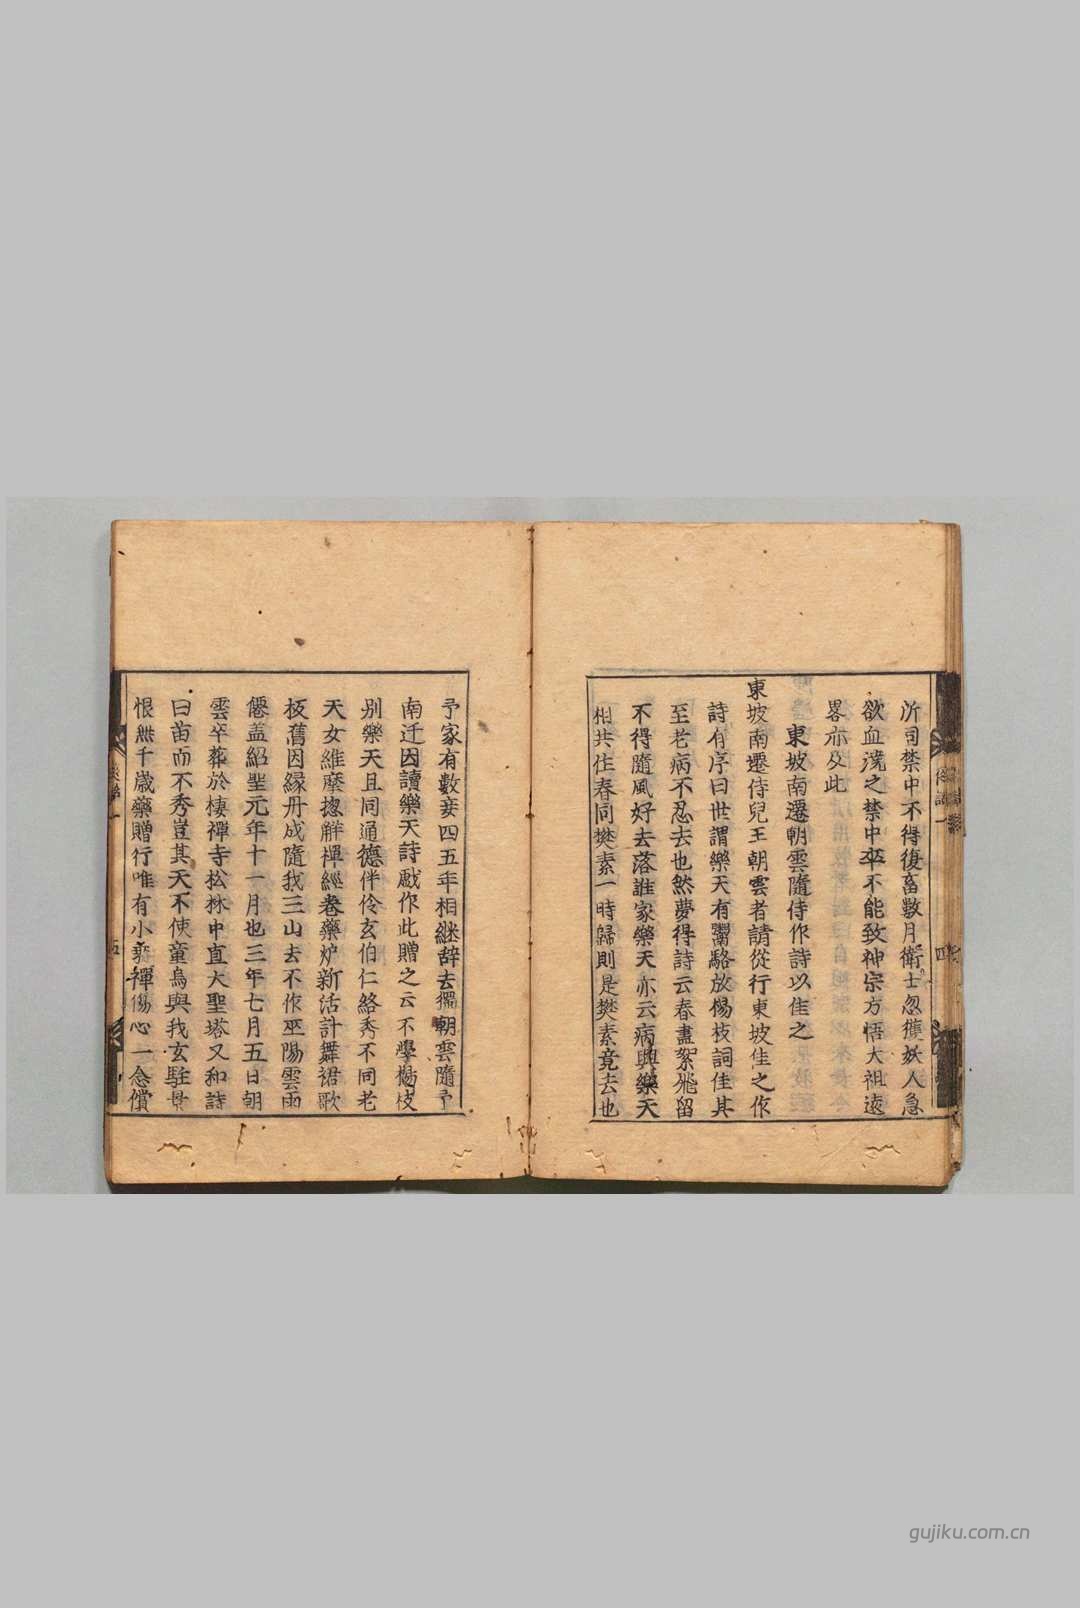 所司禁中不得復畜數月衛士忽獲妖人急
欲血澆之禁中卒不能致神宗方悟太祖遠
畧亦及此
東坡南遷朝雲隨侍作詩以佳之
東坡南遷侍兒王朝雲者請從行東坡佳之作
詩有序曰世謂樂天有鬻駱放楊枝詞佳其
至老病不忍去也然夢得詩云春盡絮飛留
不得隨風好去落誰家樂天亦云病與樂天
相共住春同樊素一時歸則是樊素竟去也
予家有數妾四五年相継辞去獨朝雲隨予
南迁因讀樂天詩戱作此贈之云不學楊枝
別樂天且同通德伴伶玄伯仁絡秀不同老
天女維摩揔觧禪經卷藥炉新活計舞裙歌
板舊因緣丹成隨我三山去不作巫陽雲雨
僊盖紹聖元年十一月也三年七月五日朝
雲卒葬於棲禪寺松林中直大聖塔又和詩
曰苗而不秀豈其天不使童烏與我玄駐景
恨無千歲藥贈行唯有小乘禪傷心一念償
四
五
gujiku.com.cn